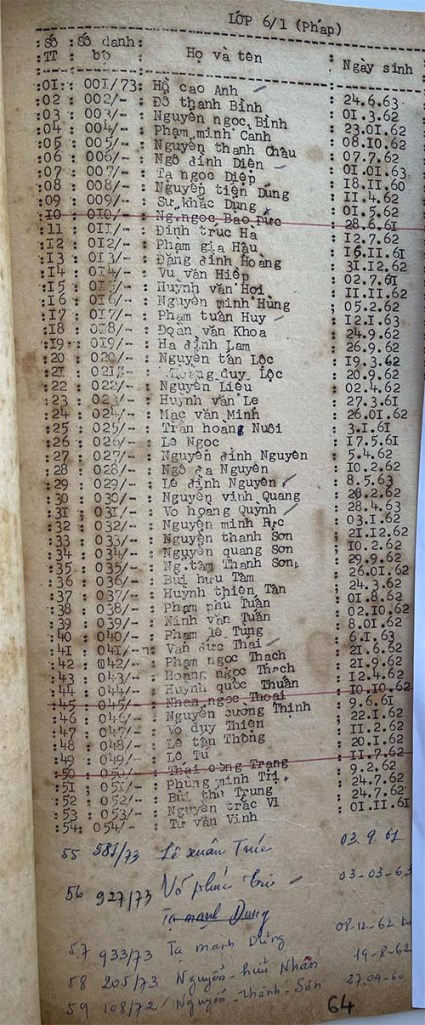 LỚP 6/1 (Pháp)
Số TT : Số danh bộ : Họ và tên : Ngày sinh
:01: 001/73: Hồ cao Anh : 24.6.63
:02 : 002/- : Đỗ thanh Bình : 01.3.62
:03 : 003/- : Nguyễn ngọc Bình : 23.01.62
:04 : 004/- : Phạm minh Cảnh : 08.10.62
:05 : 005/- : Nguyễn thanh Châu : 07.7.62
:06 : 006/- : Ngô đình Diên : 01.01.63
:07 : 007/- : Tạ ngọc Diệp : 18.11.60
:08 : 008/- : Nguyễn tiến Dũng : 11.4.62
:09 : 009/- : Sư khắc Dụng : 01.5.62
:10 : 010/- : Ng.ngọc Bảo Đức : 28.6.61
:11 : 011/- : Đinh trúc Hà : 12.7.62
:12 : 012/- : Phạm gia Hậu : 16.11.61
:13 : 013/- : Đặng đình Hoàng : 31.12.62
:14 : 014/- : Vũ văn Hiệp : 02.7.61
:15 : 015/- : Huỳnh văn Hơi : 11.11.62
:16 : 016/- : Nguyễn minh Hùng : 05.2.62
:17 : 017/- : Phạm tuấn Huy : 12.1.63
:18 : 018/- : Đoàn văn Khoa : 24.9.62
:19 : 019/- : Hà đình Lam : 26.9.62
:20 : 020/- : Nguyễn tấn Lộc : 19.3.62
:21 : 021/- : Hoàng duy Lộc : 20.9.62
:22 : 022/- : Nguyễn Liêu : 02.4.62
:23 : 023/- : Huỳnh văn Le : 27.3.61
:24 : 024/- : Mạc văn Minh : 26.01.62
:25 : 025/- : Trần hoàng Nuôi : 3.1.61
:26 : 026/- : Lê Ngọc : 17.5.61
:27 : 027/- : Nguyễn đình Nguyên : 5.4.62
:28 : 028/- : Ngô đa Nguyên : 10.2.62
:29 : 029/- : Lê đình Nguyên : 8.5.63
:30 : 030/- : Nguyễn vinh Quang : 28.2.62
:31 : 031/- : Võ hoàng Quỳnh : 28.4.63
:32 : 032/- : Nguyễn minh : 03.1.62
:33 : 033/- : Nguyễn thanh Sơn : 21.12.62
:34 : 034/- : Nguyễn quang Sơn : 10.2.62
:35 : 035/- : Ng.tâm Thanh Sơn : 29.9.62
:36 : 036/- : Bùi hữu Tâm : 26.01.62
:37 : 037/- : Huỳnh thiện Tân : 24.3.62
:38 : 038/- : Phạm phú Tuấn : 01.8.62
:39 : 039/- : Ninh văn Tuấn : 02.10.62
:40 : 040/- : Phạm lê Tùng : 8.01.62
:41 : 041/- : Văn đức Thái : 6.1.63
:42 : 042/- : Phạm ngọc Thạch : 21.6.62
:43 : 043/- : Hoàng ngọc Thạch : 21.9.62
:44 : 044/- : Huỳnh quốc Thuần : 12.4.62
:45 : 045/- : Nhan ngọc Thoại : 10.10.62
:46 : 046/- : Nguyễn cường Thịnh : 9.6.61
:47 : 047/- : Võ duy Thiện : 22.1.62
:48 : 048/- : Lê tấn Thông : 11.2.62
:49 : 049/- : Lê Tú : 20.1.62
:50 : 050/- : Thái công Trạng : 11.7.62
:51 : 051/- : Phùng minh Trị : 9.2.62
:52 : 052/- : Bùi thủ Trung : 24.7.62
:53 : 053/- : Nguyễn trắc Vi : 24.7.62
:54: 054/- : Từ văn Vinh : 01.11.61
55 581/73 Lê xuân Trúc 03.9.61
56 927/73 Võ phước 03-03-63
Tạ mạnh Dũng
57 933/73 Tạ mạnh Dũng 08-12-62
58 205/73 Nguyễn-hữu Nhân 19-8-62
59 108/72 Nguyễn-thành-Sơn 27.04-60
64